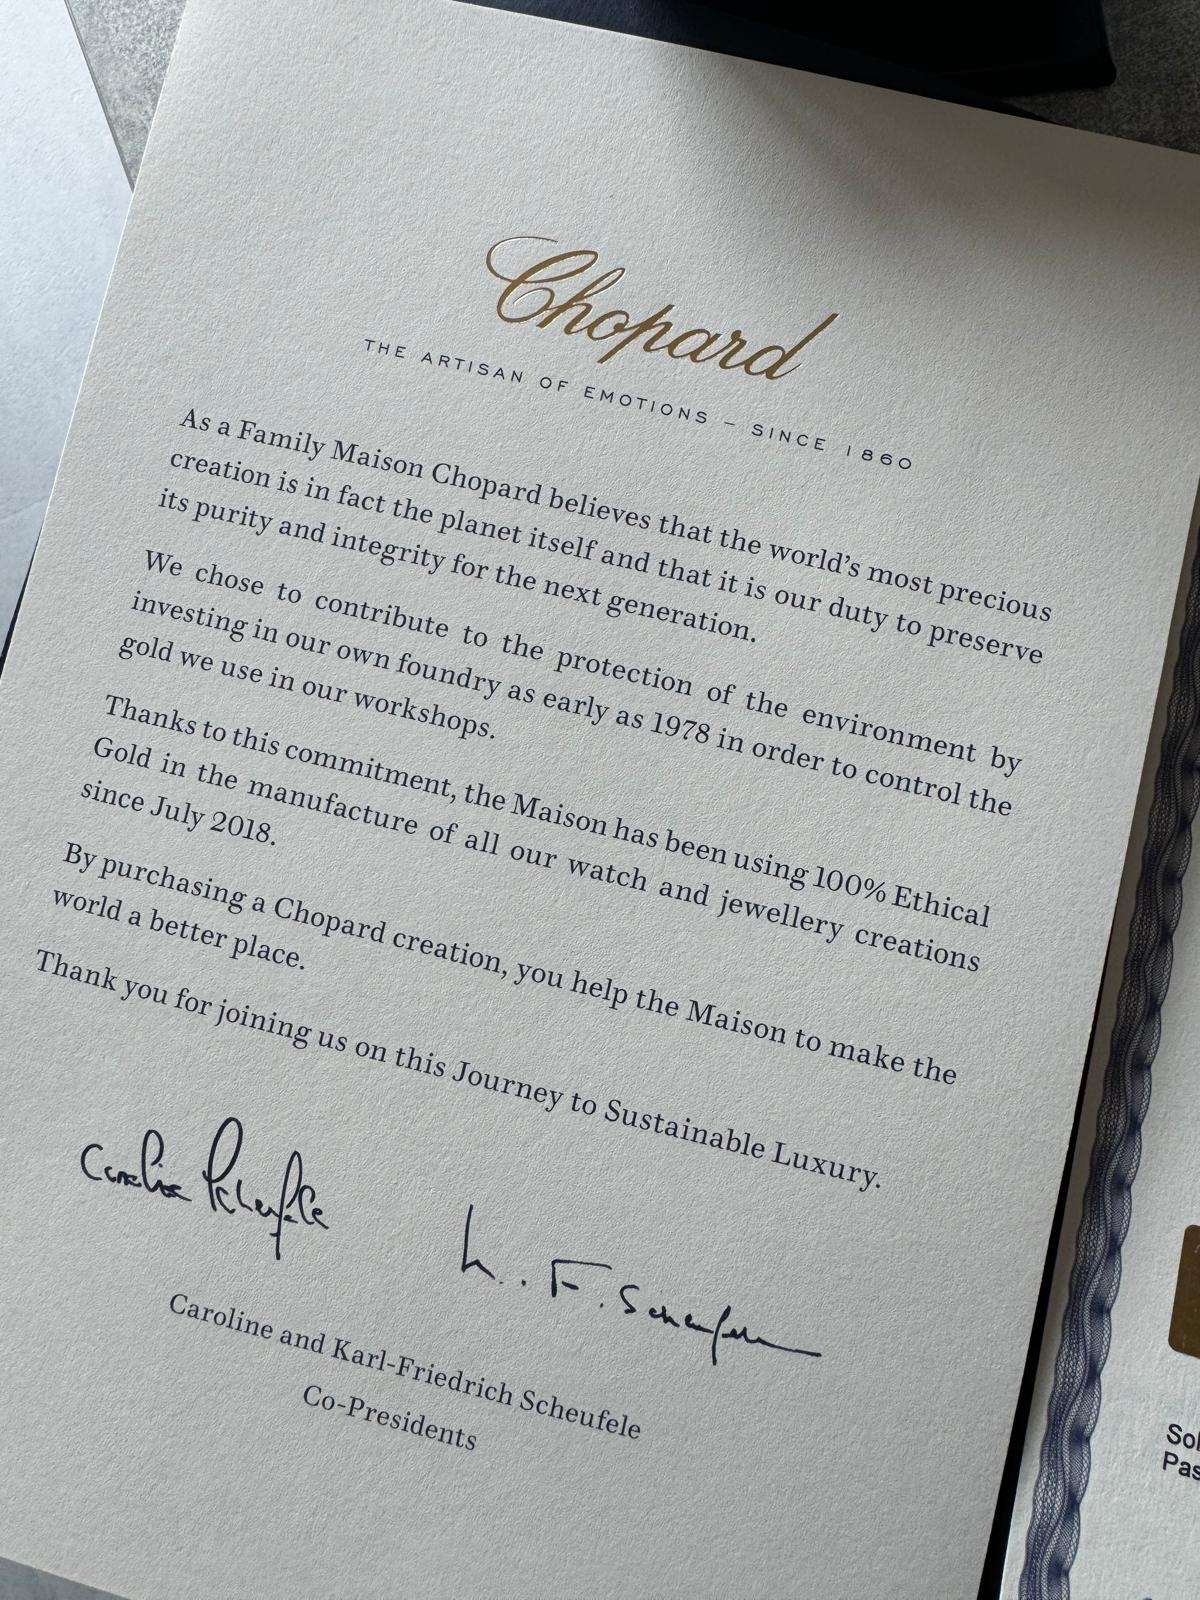 Chopard
THE ARTISAN OF EMOTIONS – SINCE 1860
As a Family Maison Chopard believes that the world's most precious
creation is in fact the planet itself and that it is our duty to preserve
its purity and integrity for the next generation.
We chose to contribute to the protection of the environment by
investing in our own foundry as early as 1978 in order to control the
gold we use in our workshops.
Thanks to this commitment, the Maison has been using 100% Ethical
Gold in the manufacture of all our watch and jewellery creations
since July 2018.
By purchasing a Chopard creation, you help the Maison to make the
world a better place.
Thank you for joining us on this Journey to Sustainable Luxury.
Caroline Scheufele
K. F. Scheufele
Caroline and Karl-Friedrich Scheufele
Co-Presidents